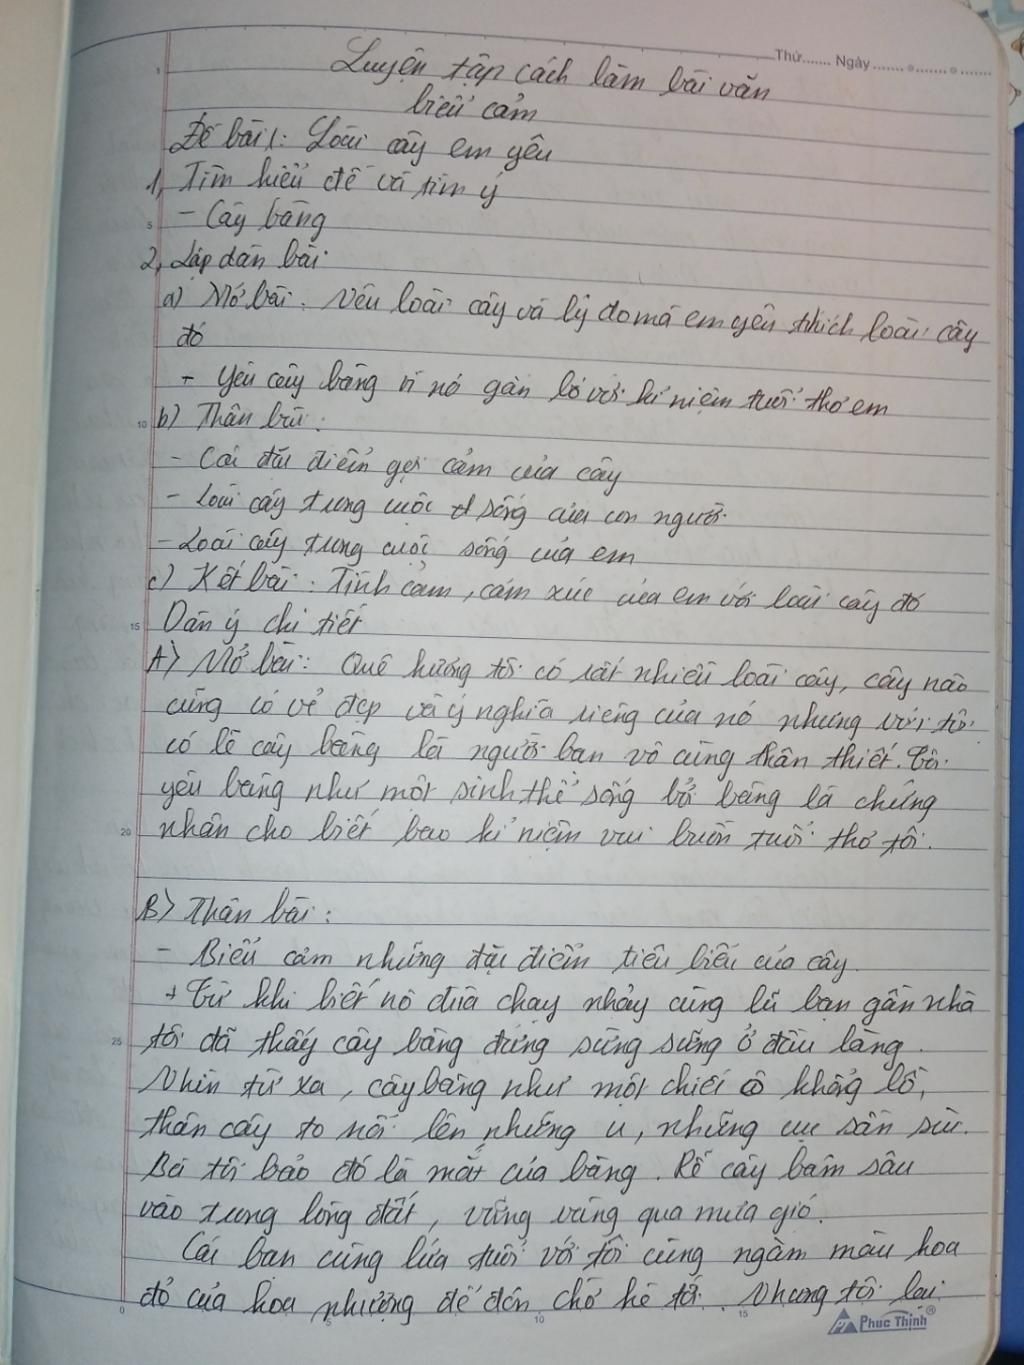 Thứ....... Ngày.......
Luyện tập cách làm bài văn
biểu cảm
Đề bài 1: Loài cây em yêu
1, Tìm hiểu đề và tìm ý
- Cây bàng
2, Lập dàn bài
a) Mở bài. Nêu loài cây và lý do mà em yêu thích loài cây
đó
+ Yêu cây bàng vì nó gắn bó với kỉ niệm tuổi thơ em
b) Thân bài:
- Các đặc điểm gợi cảm của cây
- Loài cây trong cuộc sống của con người
- Loài cây trong cuộc sống của em
c) Kết bài: Tình cảm, cảm xúc của em với loài cây đó
Dàn ý chi tiết
A) Mở bài: Quê hương tôi có rất nhiều loài cây, cây nào
cũng có vẻ đẹp và ý nghĩa riêng của nó nhưng với tôi
có lẽ cây bàng là người bạn vô cùng thân thiết. Tôi
yêu bàng như một sinh thể sống bởi bàng là chứng
nhân cho biết bao kỉ niệm vui buồn tuổi thơ tôi.
B) Thân bài:
- Biểu cảm những đặc điểm tiêu biểu của cây.
+ Từ khi biết nô đùa chạy nhảy cùng lũ bạn gần nhà
tôi đã thấy cây bàng đứng sừng sững ở đầu làng.
Nhìn từ xa, cây bàng như một chiếc ô khổng lồ,
thân cây to nổi lên những u, những cục sần sùi.
Bà tôi bảo đó là mắt của bàng. Rễ cây bám sâu
vào trong lòng đất, vững vàng qua mưa gió.
Các bạn cùng lứa tuổi với tôi cùng ngắm màu hoa
đỏ của hoa phượng để đón chờ hè tới. Nhưng tôi lại
Phúc Thịnh®